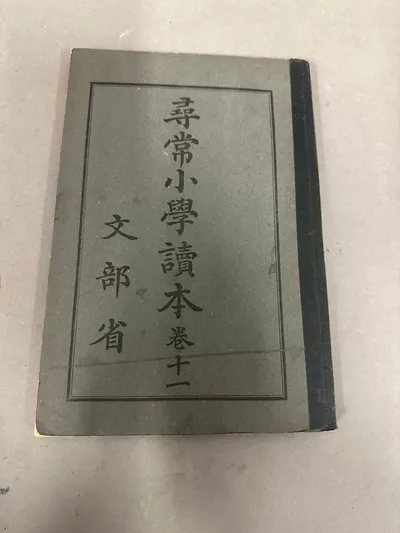 尋常小學讀本卷十一
文部省